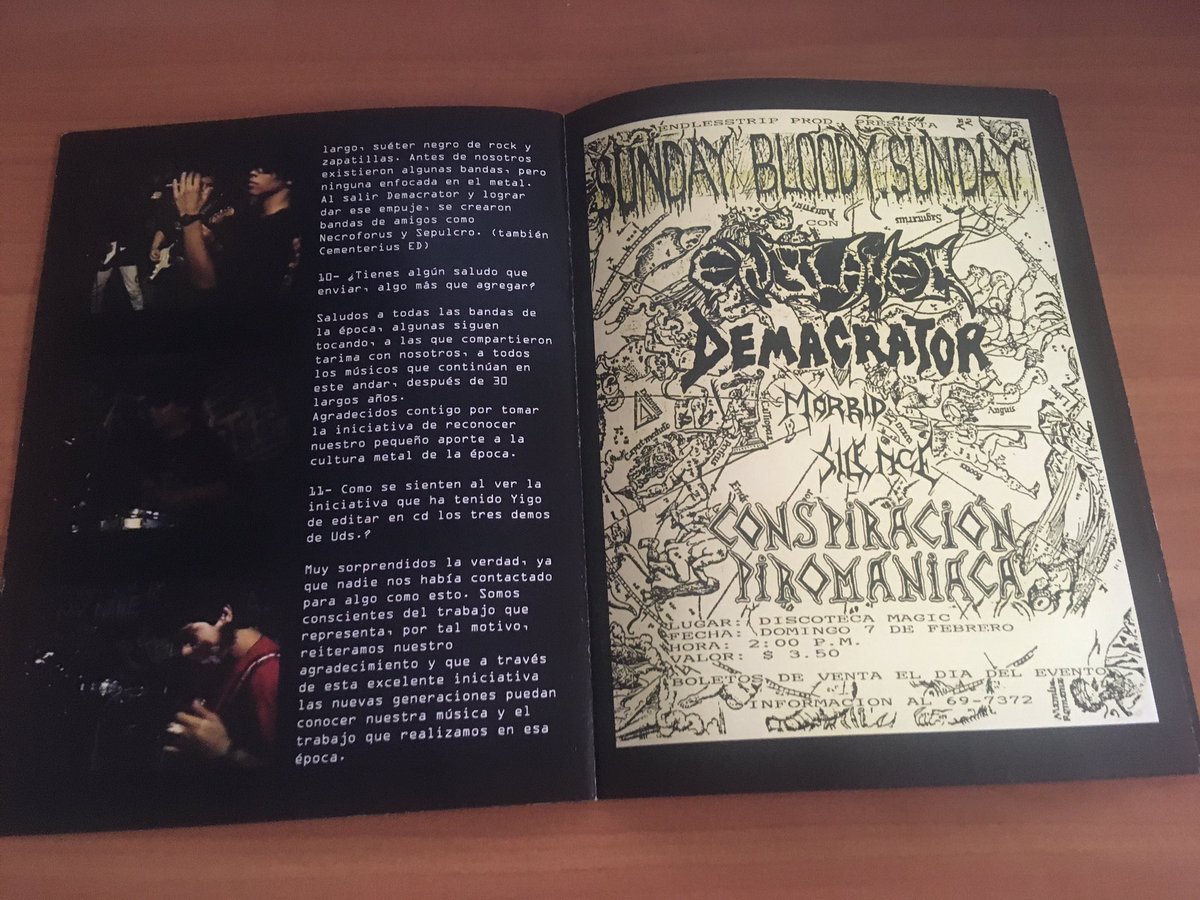 largo, suéter negro de rock y
zapatillas. Antes de nosotros
existieron algunas bandas, pero
ninguna enfocada en el metal.
Al salir Demacrator y lograr
dar ese empuje, se crearon
bandas de amigos como
Necroforus y Sepulcro. (también
Cementerius ED)
10- ¿Tienes algún saludo que
enviar, algo más que agregar?
Saludos a todas las bandas de
la época, algunas siguen
tocando, a las que compartieron
tarima con nosotros, a todos
los músicos que continúan en
este andar, después de 30
largos años.
Agradecidos contigo por tomar
la iniciativa de reconocer
nuestro pequeño aporte a la
cultura metal de la época.
11- Como se sienten al ver la
iniciativa que ha tenido Yigo
de editar en cd los tres demos
de Uds.?
Muy sorprendidos la verdad, ya
que nadie nos había contactado
para algo como esto. Somos
conscientes del trabajo que
representa, por tal motivo,
reiteramos nuestro
agradecimiento y que a través
de esta excelente iniciativa
las nuevas generaciones puedan
conocer nuestra música y el
trabajo que realizamos en esa
época.
ENDLESSTRIP PROD. PRESENTA
SUNDAY BLOODY SUNDAY
Sagittarius
CON
DEMACRATOR
MORBID
Anguis
SILENCE
CONSPIRACION
PIROMANIACA
LUGAR: DISCOTECA MAGIC
FECHA: DOMINGO 7 DE FEBRERO
HORA: 2:00 P.M.
VALOR: $ 3.50
BOLETOS DE VENTA EL DIA DEL EVENTO
INFORMACION AL 69-7372